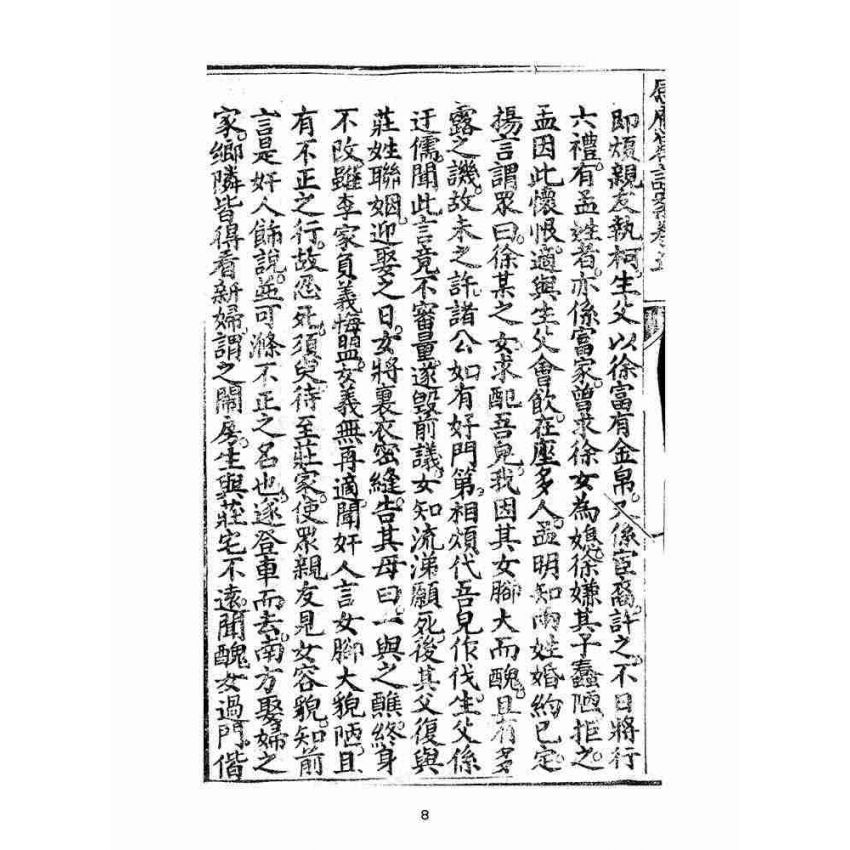 即煩親友執柯生父以徐富有金帛又係宦裔許之不日將行
六禮有孟姓者亦係富家曾求徐女為媳徐嫌其子蠢陋拒之
孟因此懷恨適與生父會飲在座多人孟明知兩姓婚約已定
揚言謂眾曰徐某之女求配吾兒我因其女腳大而醜且有多
露之譏故未之許諸公如有好門第相煩代吾兒作伐生父係
迂儒聞此言竟不審量遂毀前議女知流涕願死後其父復與
莊姓聯姻迎娶之日女將裏衣密縫告其母曰一與之醮終身
不改雖李家負義悔盟女義無再適聞奸人言女腳大貌陋且
有不正之行故忍死須臾待至莊家使眾親友見女容貌知前
言是奸人飾說並可滌不正之名也遂登車而去南方娶婦之
家鄉隣皆得看新婦謂之鬧房生與莊宅不遠聞醜女過門偕
8